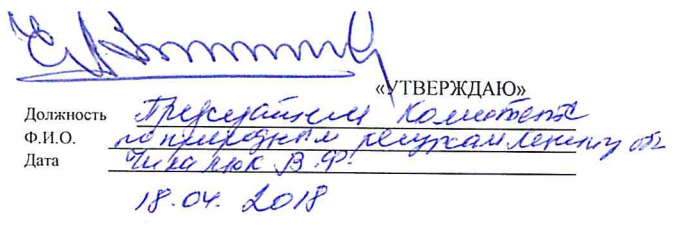 «УТВЕРЖДАЮ»
Должность Председатель Комитета
Ф.И.О. по природным ресурсам Ленингр обл
Дата Чикалюк В.Ф.
18.04.2018